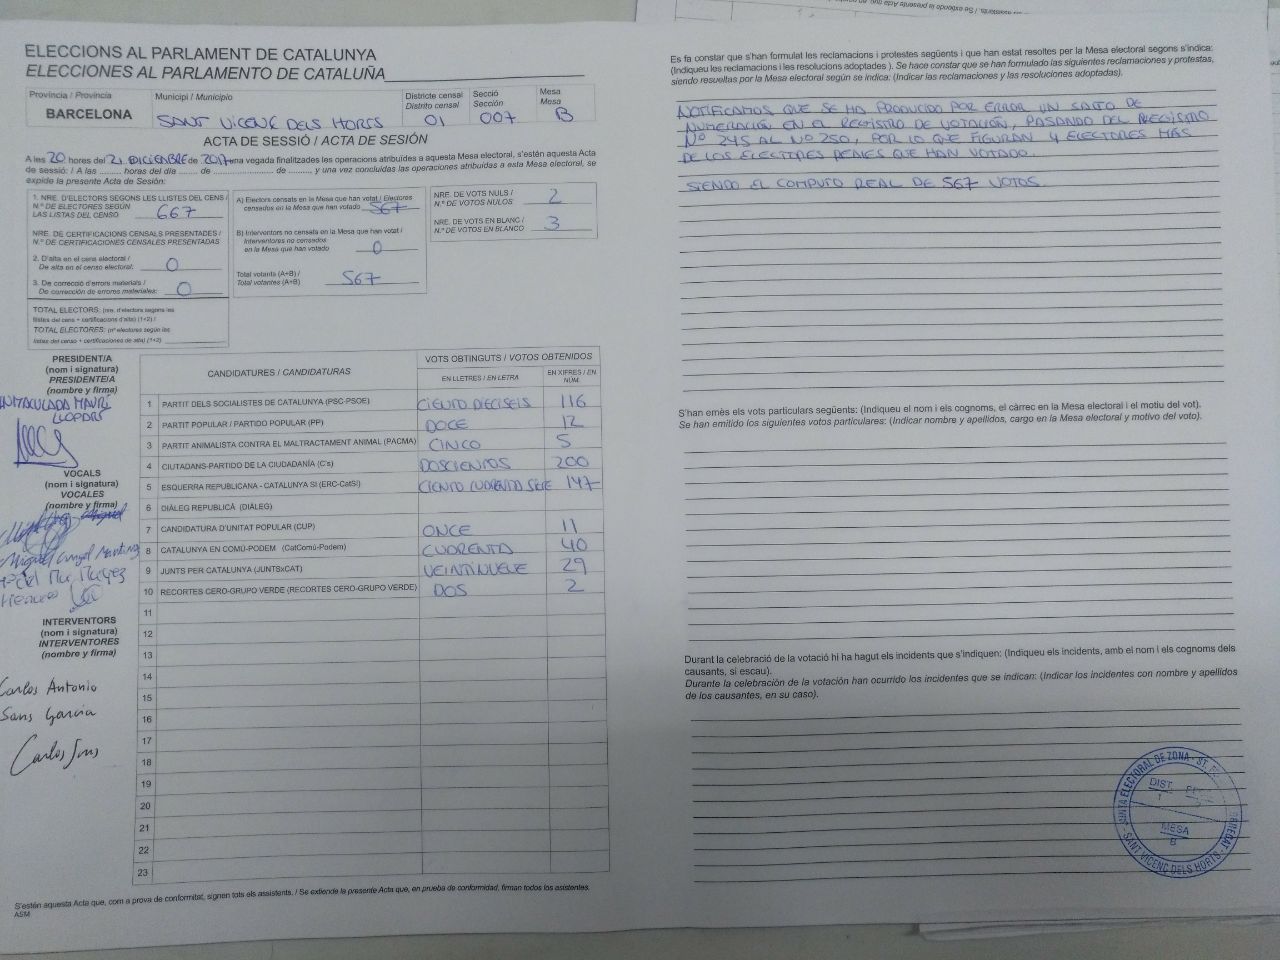 ELECCIONS AL PARLAMENT DE CATALUNYA
ELECCIONES AL PARLAMENTO DE CATALUÑA
Província / Provincia
BARCELONA
Municipi / Municipio
SANT VICENÇ DELS HORTS
Districte censal
Distrito censal
01
Secció
Sección
007
Mesa
Mesa
B
ACTA DE SESSIÓ / ACTA DE SESIÓN
A les 20 hores del 21 DICIEMBRE de 2017 una vegada finalitzades les operacions atribuïdes a aquesta Mesa electoral, s'estén aquesta Acta
de sessió: / A las ......... horas del día ....... de ........................ de .......... y una vez concluidas las operaciones atribuidas a esta Mesa electoral, se
expide la presente Acta de Sesión:
1. NRE. D'ELECTORS SEGONS LES LLISTES DEL CENS /
N.º DE ELECTORES SEGÚN
LAS LISTAS DEL CENSO 667
NRE. DE CERTIFICACIONS CENSALS PRESENTADES /
N.º DE CERTIFICACIONES CENSALES PRESENTADAS
2. D'alta en el cens electoral /
De alta en el censo electoral: 0
3. De correcció d'errors materials /
De corrección de errores materiales: 0
TOTAL ELECTORS: (nre. d'electors segons les
llistes del cens + certificacions d'alta) (1+2) /
TOTAL ELECTORES: (nº electores según las
listas del censo + certificaciones de alta) (1+2)
A) Electors censats en la Mesa que han votat / Electores
censados en la Mesa que han votado 567
B) Interventors no censats en la Mesa que han votat /
Interventores no censados
en la Mesa que han votado 0
Total votants (A+B) /
Total votantes (A+B) 567
NRE. DE VOTS NULS /
N.º DE VOTOS NULOS 2
NRE. DE VOTS EN BLANC /
N.º DE VOTOS EN BLANCO 3
PRESIDENT/A
(nom i signatura)
PRESIDENTE/A
(nombre y firma)
VOCALS
(nom i signatura)
VOCALES
(nombre y firma)
Miguel Angel
INTERVENTORS
(nom i signatura)
INTERVENTORES
(nombre y firma)
Carlos Antonio
Sans García
Carlos Sans
CANDIDATURES / CANDIDATURAS
VOTS OBTINGUTS / VOTOS OBTENIDOS
EN LLETRES / EN LETRA
EN XIFRES / EN NÚM.
1 PARTIT DELS SOCIALISTES DE CATALUNYA (PSC-PSOE) CIENTO DIECISEIS 116
2 PARTIT POPULAR / PARTIDO POPULAR (PP) DOCE 12
3 PARTIT ANIMALISTA CONTRA EL MALTRACTAMENT ANIMAL (PACMA) CINCO 5
4 CIUTADANS-PARTIDO DE LA CIUDADANÍA (C's) DOSCIENTOS 200
5 ESQUERRA REPUBLICANA - CATALUNYA SÍ (ERC-CatSí) CIENTO CUARENTA SIETE 147
6 DIÀLEG REPUBLICÀ (DIÀLEG)
7 CANDIDATURA D'UNITAT POPULAR (CUP) ONCE 11
8 CATALUNYA EN COMÚ-PODEM (CatComú-Podem) CUARENTA 40
9 JUNTS PER CATALUNYA (JUNTSxCAT) VEINTINUEVE 29
10 RECORTES CERO-GRUPO VERDE (RECORTES CERO-GRUPO VERDE) DOS 2
11
12
13
14
15
16
17
18
19
20
21
22
23
S'estén aquesta Acta que, com a prova de conformitat, signen tots els assistents. / Se extiende la presente Acta que, en prueba de conformidad, firman todos los asistentes.
ASM
Es fa constar que s'han formulat les reclamacions i protestes següents i que han estat resoltes per la Mesa electoral segons s'indica:
(Indiqueu les reclamacions i les resolucions adoptades ). Se hace constar que se han formulado las siguientes reclamaciones y protestas,
siendo resueltas por la Mesa electoral según se indica: (Indicar las reclamaciones y las resoluciones adoptadas).
NOTIFICAMOS QUE SE HA PRODUCIDO POR ERROR UN SALTO DE
NUMERACIÓN EN EL REGISTRO DE VOTACIÓN, PASANDO DEL REGISTRO
Nº 245 AL Nº 250, POR LO QUE FIGURAN 4 ELECTORES MÁS
DE LOS ELECTORES REALES QUE HAN VOTADO.
SIENDO EL COMPUTO REAL DE 567 VOTOS.
S'han emès els vots particulars següents: (Indiqueu el nom i els cognoms, el càrrec en la Mesa electoral i el motiu del vot).
Se han emitido los siguientes votos particulares: (Indicar nombre y apellidos, cargo en la Mesa electoral y motivo del voto).
Durant la celebració de la votació hi ha hagut els incidents que s'indiquen: (Indiqueu els incidents, amb el nom i els cognoms dels
causants, si escau).
Durante la celebración de la votación han ocurrido los incidentes que se indican: (Indicar los incidentes con nombre y apellidos
de los causantes, en su caso).
JUNTA ELECTORAL DE ZONA - ST.
SANT VICENÇ DELS HORTS
DIST.
1
MESA
B